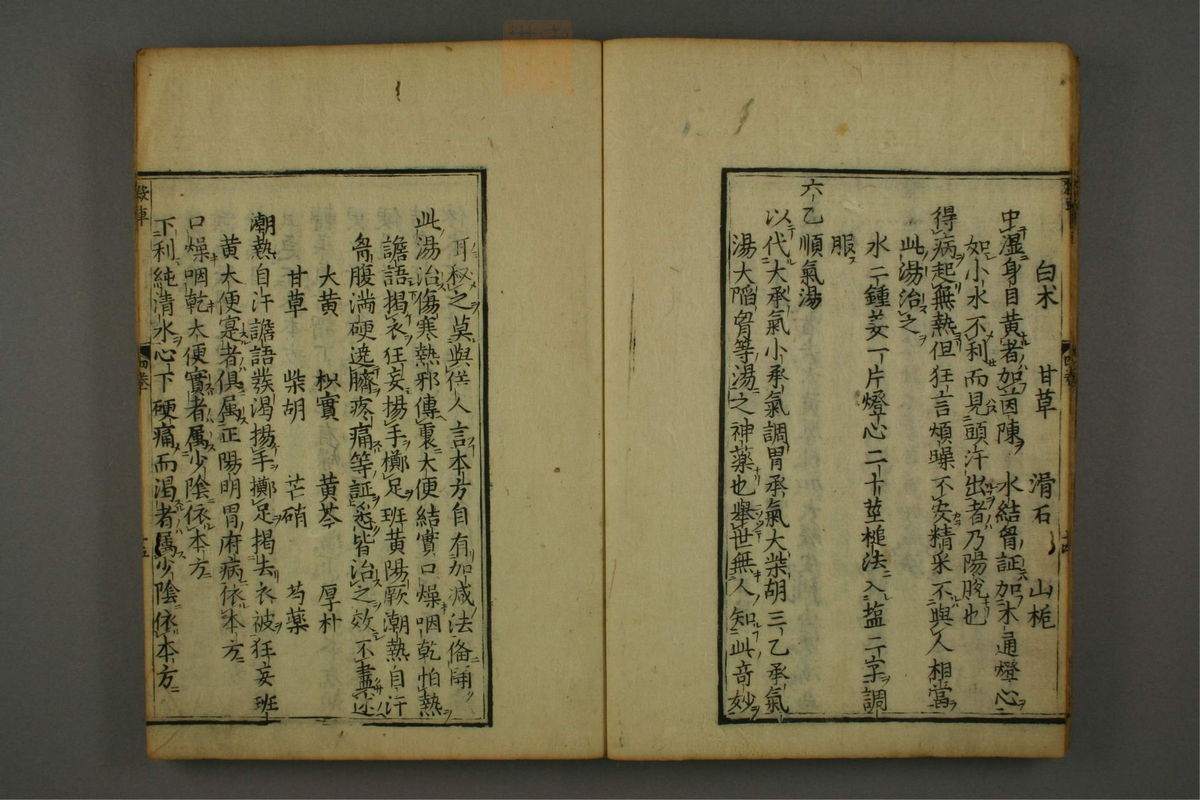 白术 甘草 滑石 山梔
中湿身目黄者加茵陳 水結胷証加木通燈心
如小水不利而見頭汗出者乃陽脫也
得病起無熱但狂言煩躁不安精采不與人相當
此湯治之
水二鍾姜一片燈心二十莖槌法入塩二字調
服
六乙順氣湯
以代大承氣小承氣調胃承氣大柴胡三乙承氣
湯大陷胷等湯之神藥也舉世無人知此奇妙
耳秘之莫與俗人言本方自有加減法俻開
此湯治傷寒熱邪傳裏大便結實口燥咽乾怕熱
譫語揭衣狂妄揚手擲足班黄陽厥潮熱自汗
胷腹満硬遶臍疼痛等証悉皆治之效不盡述
大黄 枳實 黄芩 厚朴
甘草 柴胡 芒硝 芍藥
潮熱自汗譫語發渴揚手擲足揭去衣被狂妄班
黄大便寔者俱属正陽明胃府病依本方
口燥咽乾大便實者属少陰依本方
下利純清水心下硬痛而渴者属少陰依本方
殺車
四巻
十五